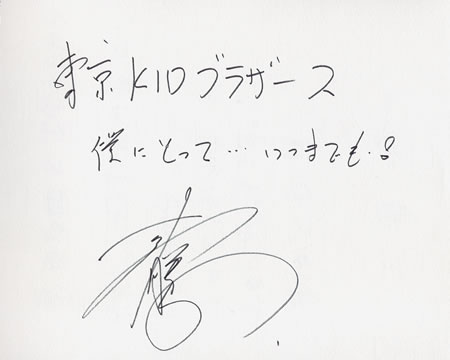 東京KIDブラザース
僕にとって…いつまでも.!